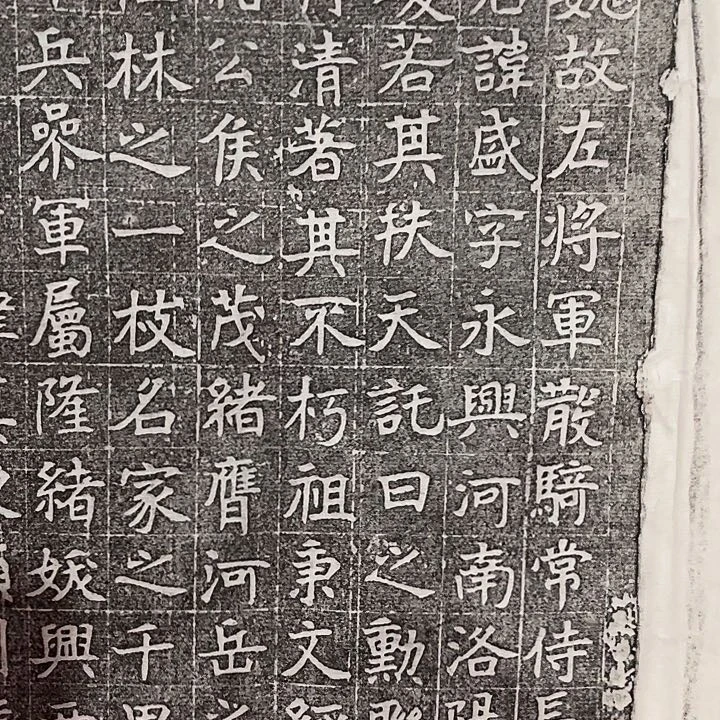 魏故左將軍散騎常侍長
諱盛字永興河南洛陽
若其扶天託日之勳
清著其不朽祖秉文經
公侯之茂緒膺河岳之
林之一枝名家之千里
兵叅軍屬隆緒娥興